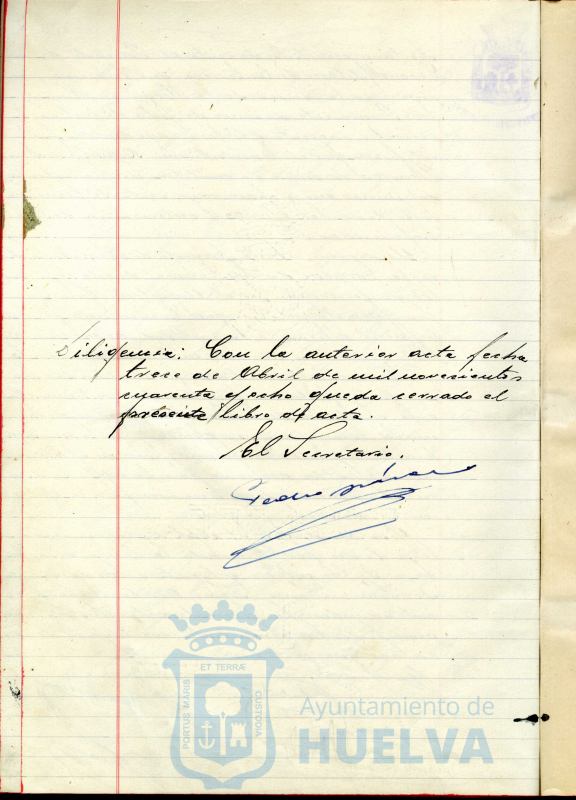 Diligencia: Con la anterior acta fecha
trece de Abril de mil novecientos
cuarenta y ocho queda cerrado el
presente libro de acta.
El Secretario.
Pedro
PORTUS MARIS
ET TERRÆ
CUSTODIA
Ayuntamiento de
HUELVA